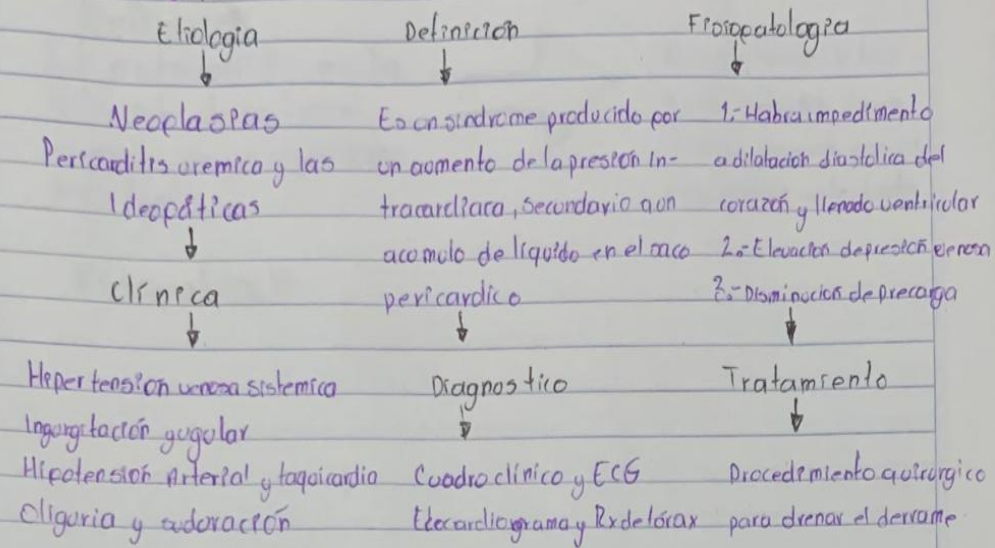 Etiologia
↓
Neoplasias
Pericarditis uremica y las
Ideopáticas
↓
Clínica
↓
Hipertension venosa sistemica
Ingurgitación yugular
Hipotension Arterial y taquicardia
Oliguria y sudoración
Definición
↓
Es un sindrome producido por
un aumento de la presión in-
tracardiaca, secundario a un
acomulo de líquido en el saco
pericardico
↓
Diagnostico
↓
Cuadro clinico y ECG
Ecocardiograma y Rx de tórax
Fisiopatologia
↓
1.- Habra impedimento
a dilatacion diastolica del
corazón y llenado ventricular
2.- Elevacion de presión
3.- Disminucion de precarga
↓
Tratamiento
↓
Procedimiento quirurgico
para drenar el derrame